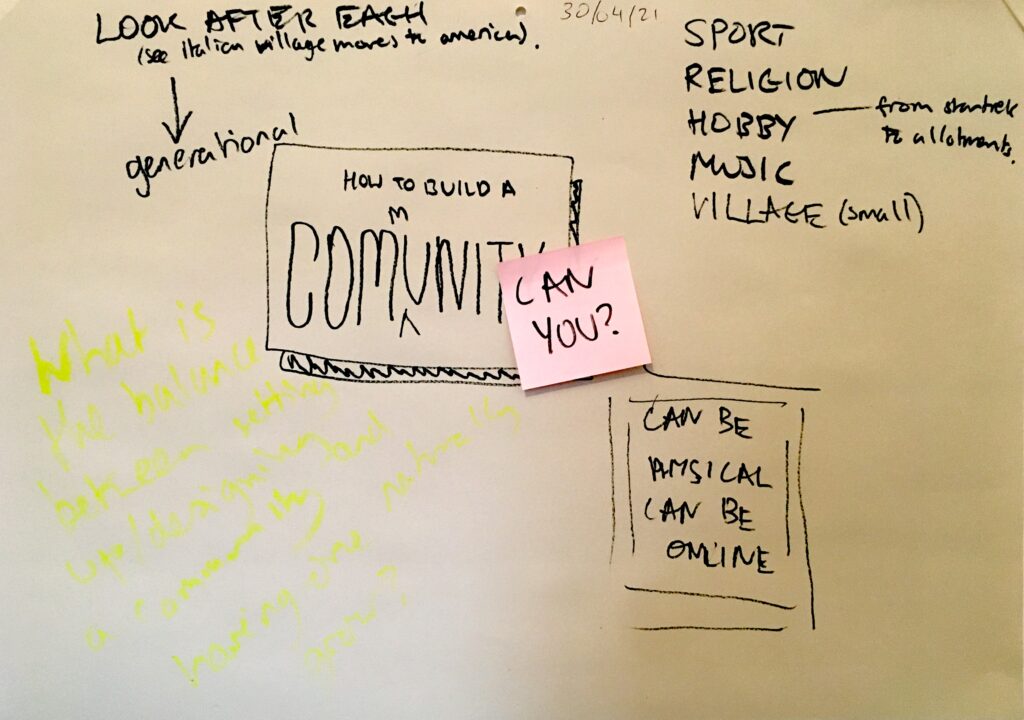 LOOK AFTER EACH
(see italian village moves to america).
generational
30/04/21
SPORT
RELIGION
HOBBY — from startrek
to allotments.
MUSIC
VILLAGE (small)
HOW TO BUILD A
M
COMUNITY
CAN
YOU?
CAN BE
PHYSICAL
CAN BE
ONLINE
What is
the balance
between setting
up/designing
a community and
having one naturally
grow?